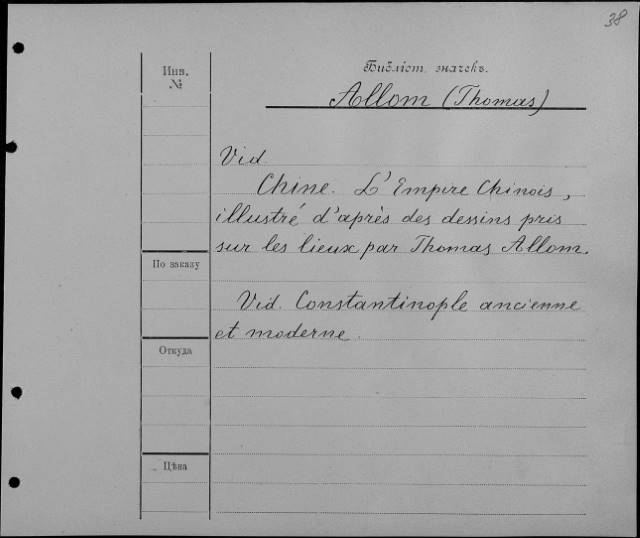 38
Инв.
№
Библіот. значекъ.
Allom (Thomas)
Vid.
Chine. L'Empire Chinois,
illustré d'après des dessins pris
sur les lieux par Thomas Allom.
По заказу
Vid. Constantinople ancienne
et moderne.
Откуда
Цѣна